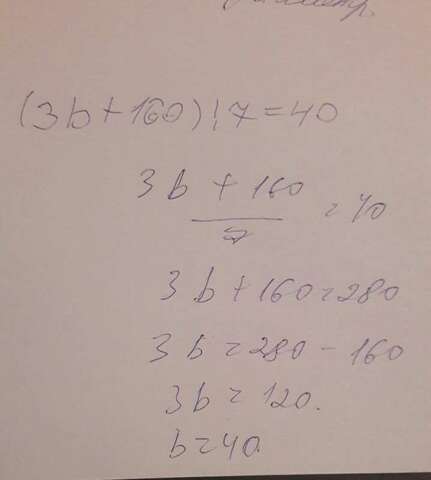 (3b+160):7=40
3b+160
7
=40
3b+160=280
3b=280-160
3b=120.
b=40.